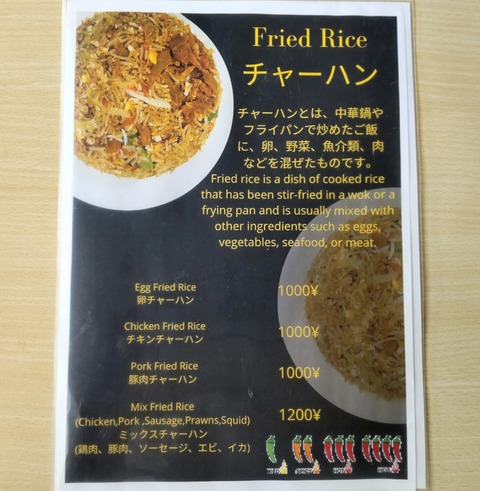 Fried Rice
チャーハン
チャーハンとは、中華鍋や
フライパンで炒めたご飯
に、卵、野菜、魚介類、肉
などを混ぜたものです。
Fried rice is a dish of cooked rice
that has been stir-fried in a wok or a
frying pan and is usually mixed with
other ingredients such as eggs,
vegetables, seafood, or meat.
Egg Fried Rice
卵チャーハン
1000¥
Chicken Fried Rice
チキンチャーハン
1000¥
Pork Fried Rice
豚肉チャーハン
1000¥
Mix Fried Rice
(Chicken,Pork ,Sausage,Prawns,Squid)
ミックスチャーハン
(鶏肉、豚肉、ソーセージ、エビ、イカ)
1200¥